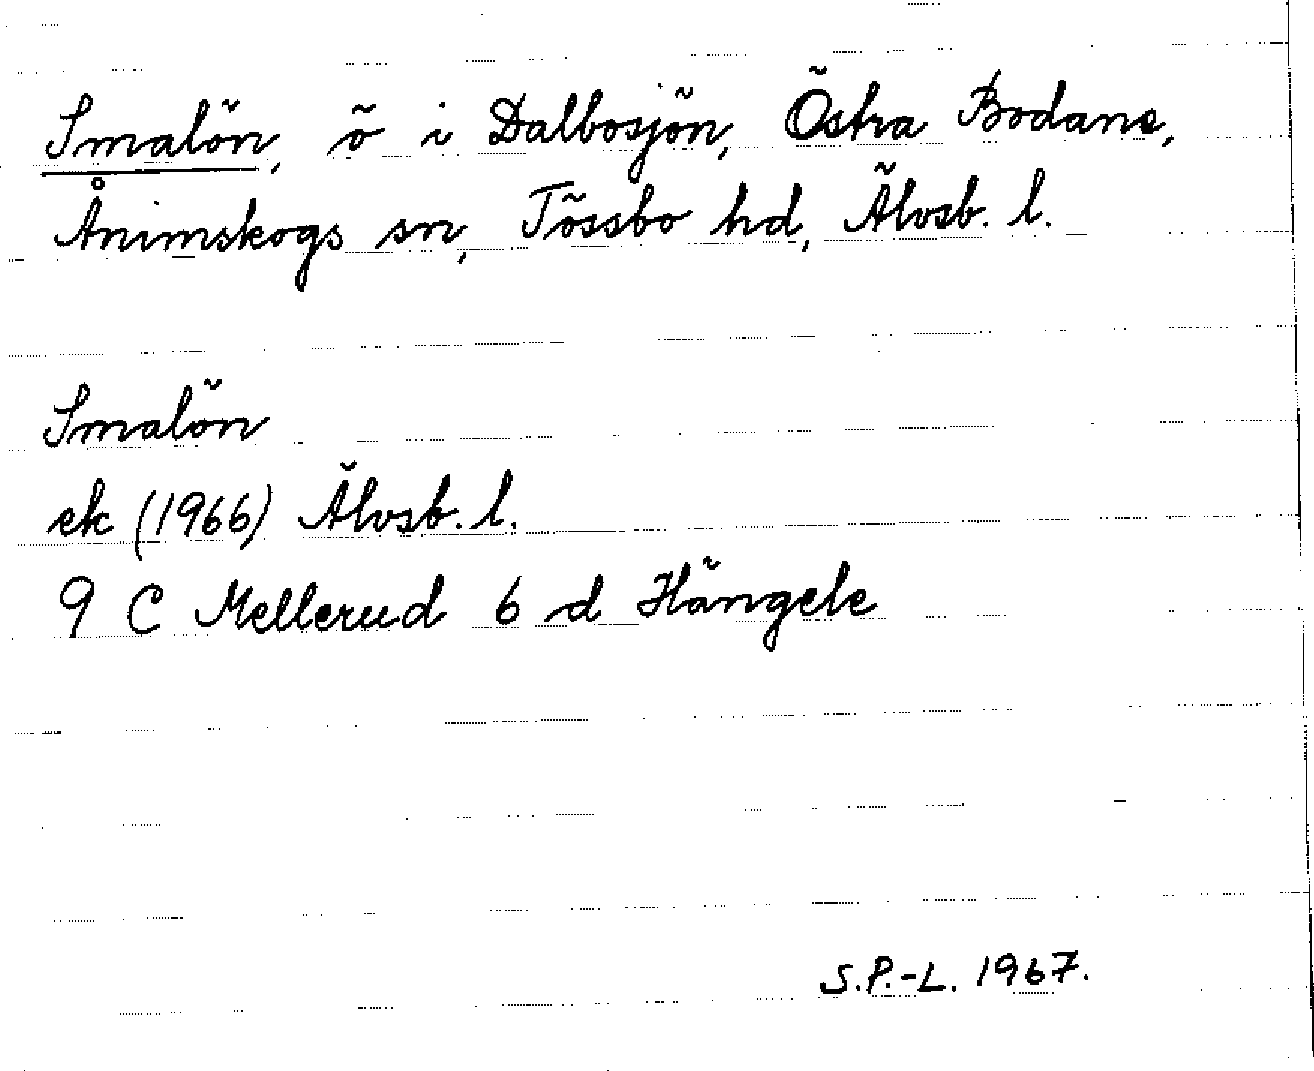 Smalön, ö i Dalbosjön, Östra Bodane,
Ånimskogs sn, Tössbo hd, Älvsb. l.
Smalön
ek (1966) Älvsb. l.
9 C Mellerud 6 d Hängele
S.P.-L. 1967.